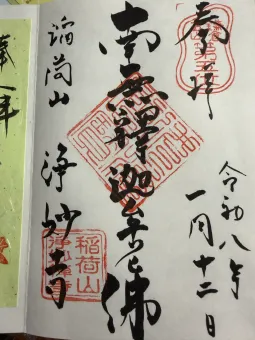 奉拝
令和八年
一月十二日
南無釋迦牟尼佛
稲荷山
浄妙寺
稲荷山